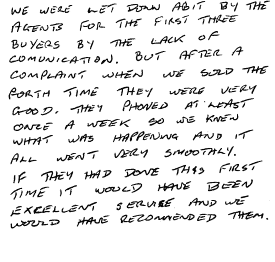 WE WERE LET DOWN ABIT BY THE
AGENTS FOR THE FIRST THREE
BUYERS BY THE LACK OF
COMUNICATION. BUT AFTER A
COMPLAINT WHEN WE SOLD THE
FORTH TIME THEY WERE VERY
GOOD. THEY PHONED AT LEAST
ONCE A WEEK SO WE KNEW
WHAT WAS HAPPENING AND IT
ALL WENT VERY SMOOTHLY.
IF THEY HAD DONE THIS FIRST
TIME IT WOULD HAVE BEEN
EXCELLENT SERVICE AND WE
WOULD HAVE RECOMMENDED THEM.